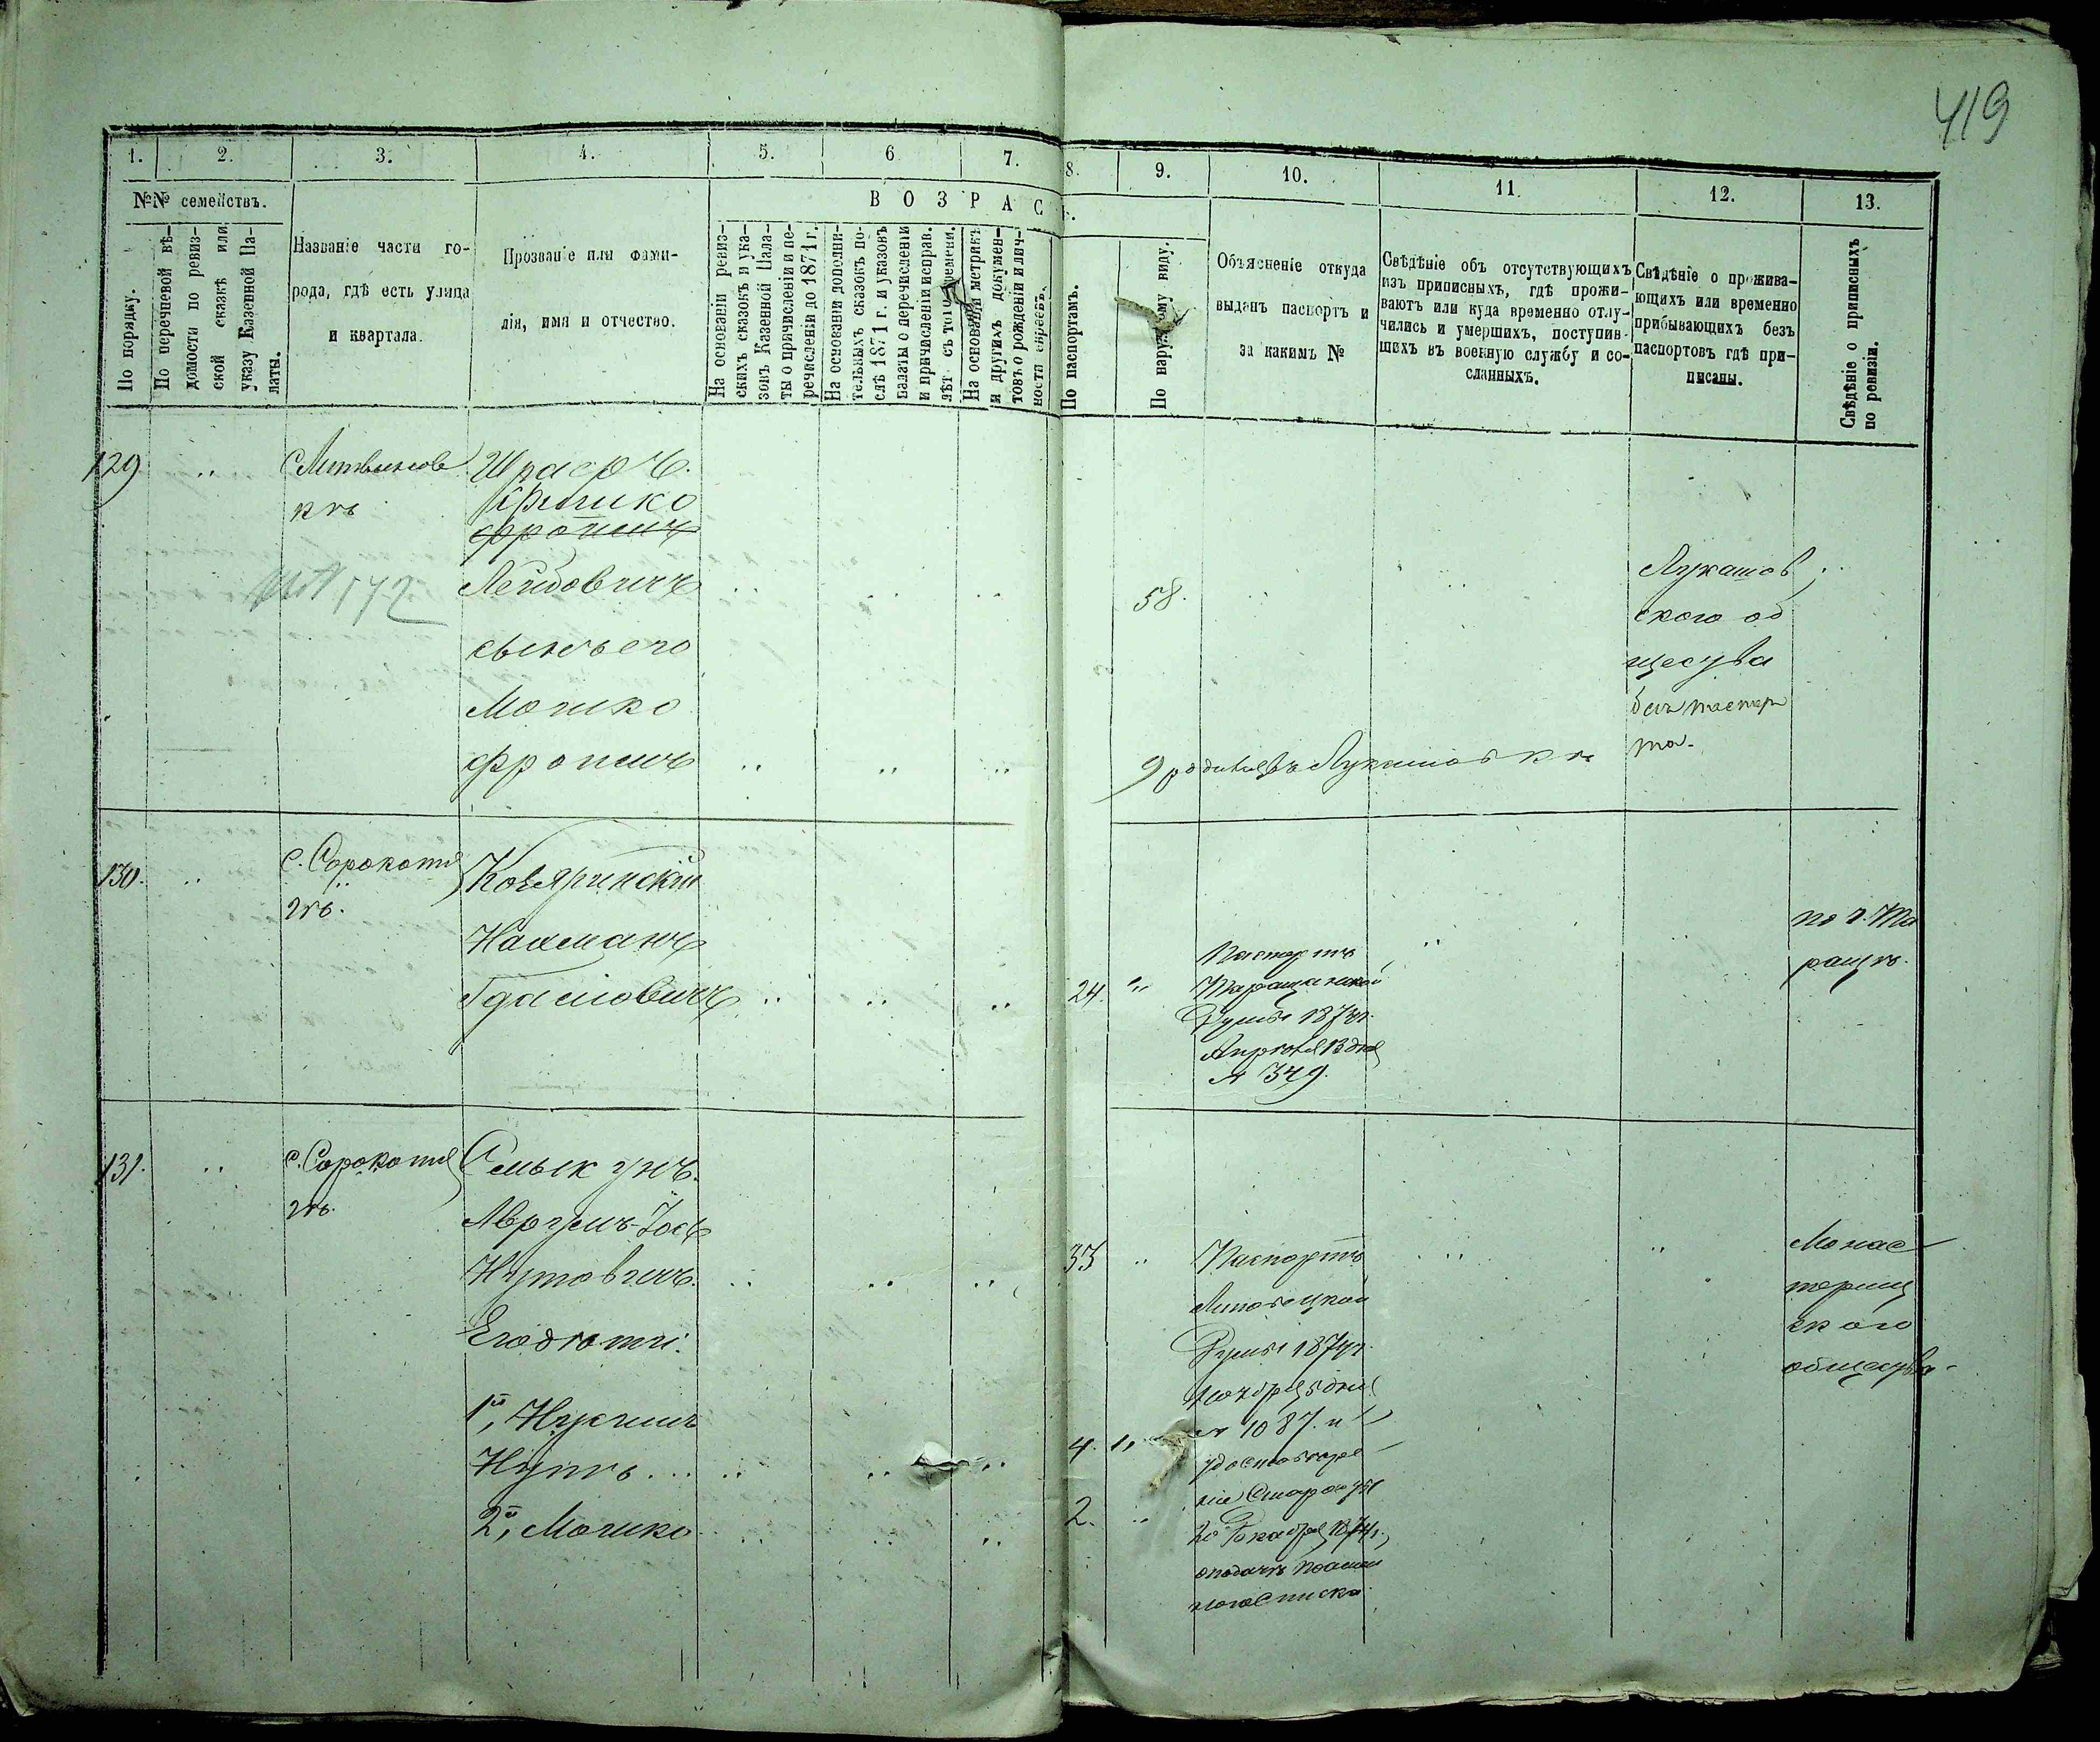 419
1. 2. 3. 4. 5. 6 7. 8. 9. 10. 11 12. 13.
№№ семействъ.
По порядку.
По перечневой вѣ-
домости по ревиз-
ской сказкѣ или
указу Казенной Па-
латы.
Названіе части го-
рода, гдѣ есть улица
и квартала.
Прозваніе или фами-
лія, имя и отчество.
ВОЗРАС
На основаніи ревиз-
скихъ сказокъ и ука-
зовъ Казенной Пала-
ты о причисленіи и пе-
речисленіи до 1871 г.
На основаніи дополни-
тельныхъ сказокъ по-
слѣ 1871 г. и указовъ
палаты о перечисленіи
и причисленіи исправ.
лѣт съ того времени.
На основаніи метрикъ
и другихъ докумен-
товъ о рожденіи и лич-
ности евреевъ.
По паспортамъ.
По наружному виду.
Объясненіе откуда
выданъ паспортъ и
за какимъ №
Свѣдѣніе объ отсутствующихъ
изъ приписныхъ, гдѣ прожи-
ваютъ или куда временно отлу-
чились и умершихъ, поступив-
шихъ въ военную службу и со-
сланныхъ.
Свѣдѣніе о прожива-
ющихъ или временно
прибывающихъ безъ
паспортовъ гдѣ при-
писаны.
Свѣдѣніе о приписныхъ
по ревизіи.
129
с Литвинов
кѣ
572
Лейбовичъ
сынъ его
Мошко
Фроимъ
58.
9
Лукашов
ского об
щества
безъ паспор
та.
130.
с. Сорокотя
гѣ.
Нахманъ
24.
Паспортъ
Таращанской
Думы 1874г.
Апрѣля 13 дня
№ 349.
по г. Та
ращѣ.
131.
с. Сорокотя
гѣ.
Аврумъ-Іось
Нутовичъ.
Его дѣти:
1й, Нухимъ
Нутъ
2й, Мошко
33
4.
2.
Паспортъ
Липовецкой
Думы 1874г.
ноября 5 дня
№ 1087. и
удостовѣре
ніе
20 Декабря 1874г.
Монас
тырищ
ского
общества